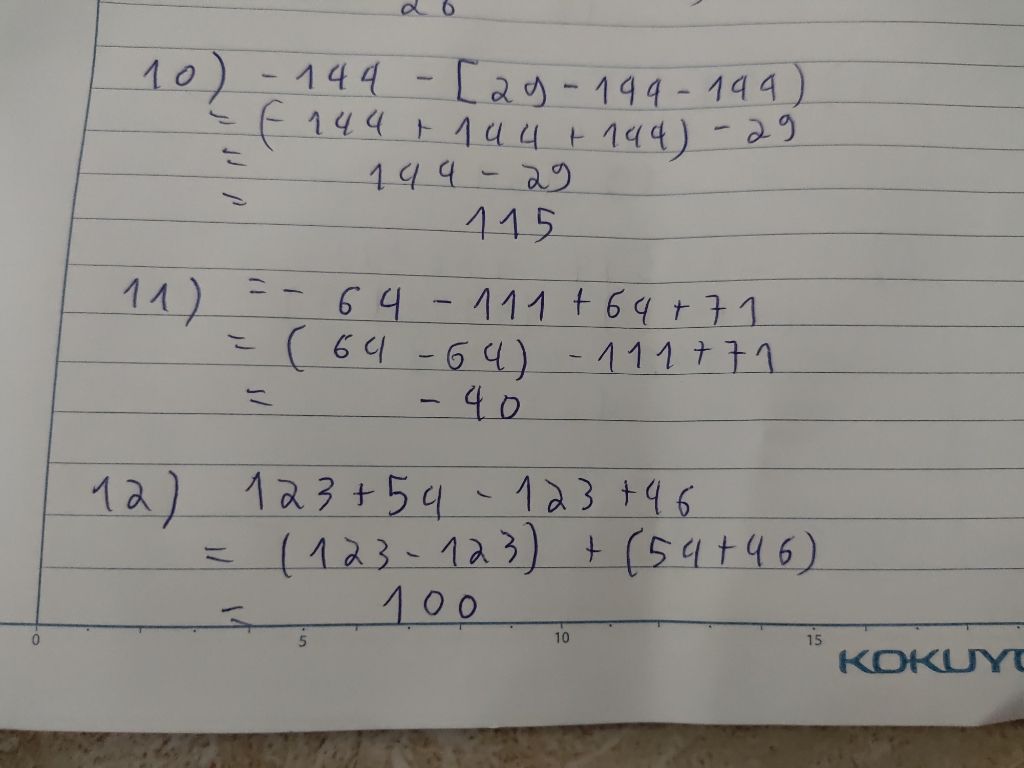 26
10) - 144 - [29 - 144 - 144)
= (- 144 + 144 + 144) - 29
= 144 - 29
= 115
11) = - 64 - 111 + 64 + 71
= (64 - 64) - 111 + 71
= - 40
12) 123 + 54 - 123 + 46
= (123 - 123) + (54 + 46)
= 100
0 5 10 15
KOKUYO